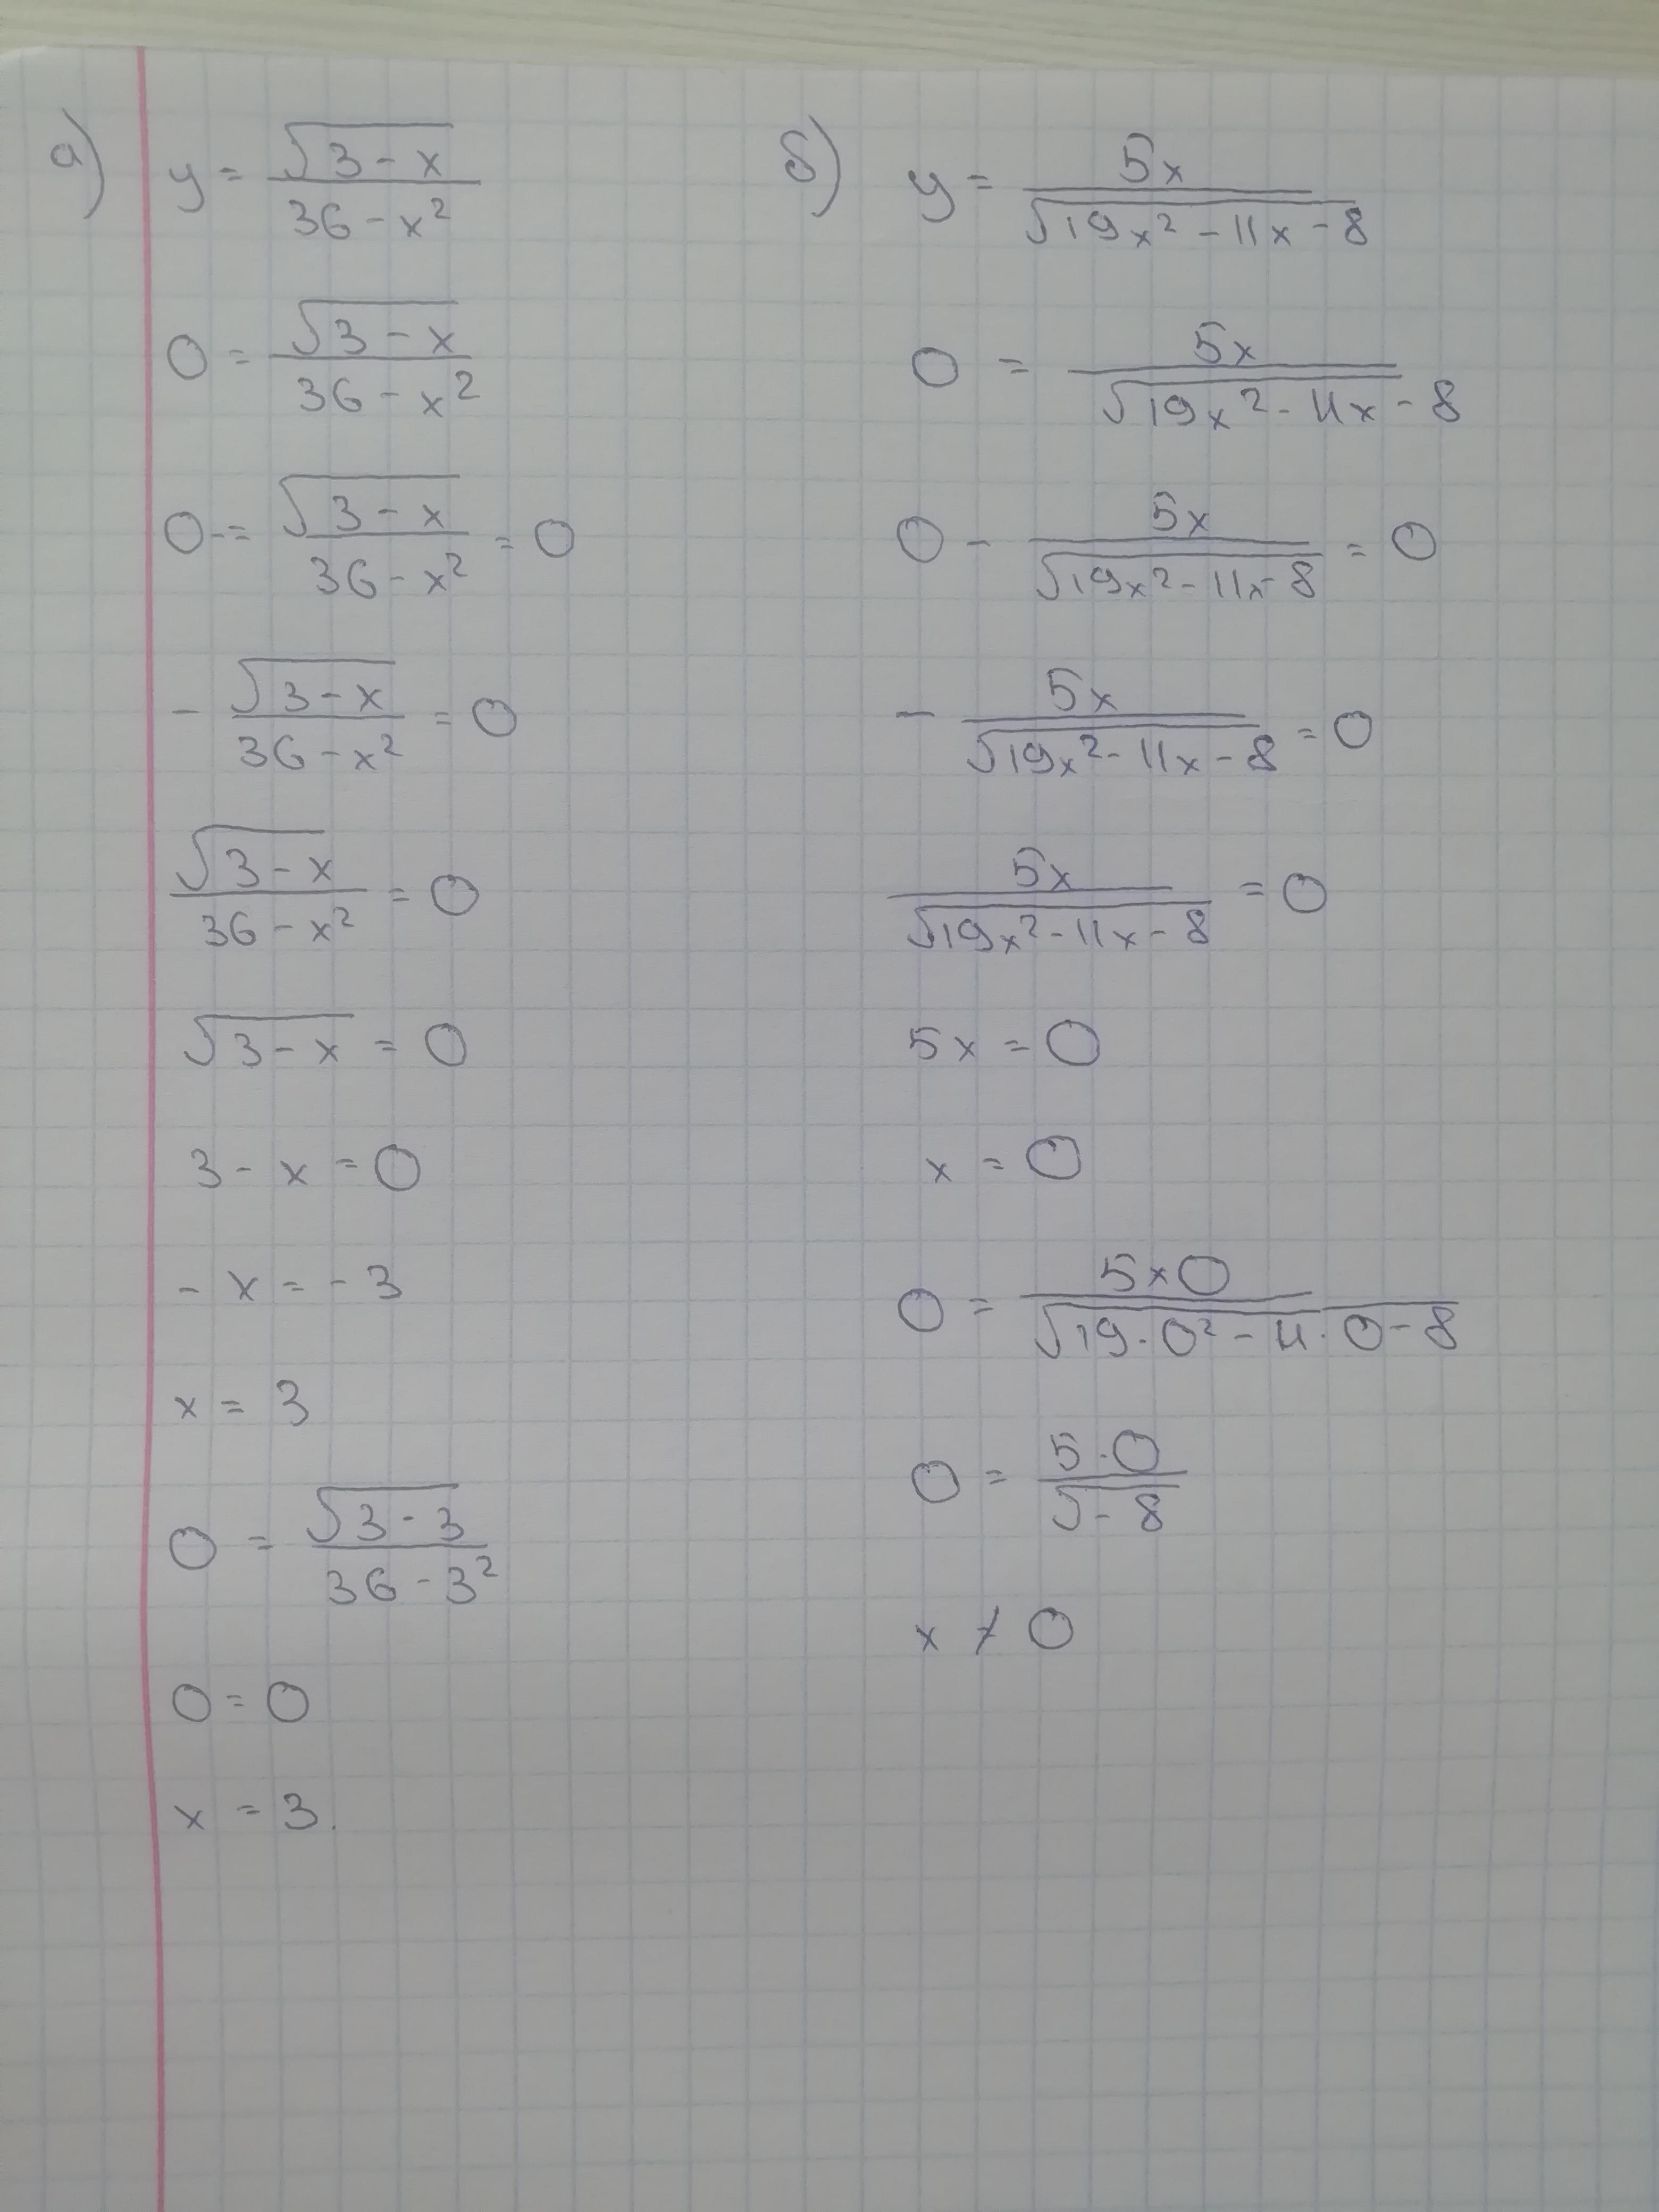 а) y = √(3 - x) / (36 - x²)
0 = √(3 - x) / (36 - x²)
0 -= √(3 - x) / (36 - x²) = 0
- √(3 - x) / (36 - x²) = 0
√(3 - x) / (36 - x²) = 0
√(3 - x) = 0
3 - x = 0
- x = - 3
x = 3
0 = √(3 - 3) / (36 - 3²)
0 = 0
x = 3.
б) y = 5x / √(19x² - 11x - 8)
0 = 5x / √(19x² - 11x) - 8
0 - 5x / √(19x² - 11x - 8) = 0
- 5x / √(19x² - 11x - 8) = 0
5x / √(19x² - 11x - 8) = 0
5x = 0
x = 0
0 = 5×0 / √(19·0² - 11·0 - 8)
0 = 5·0 / √(-8)
x ≠ 0